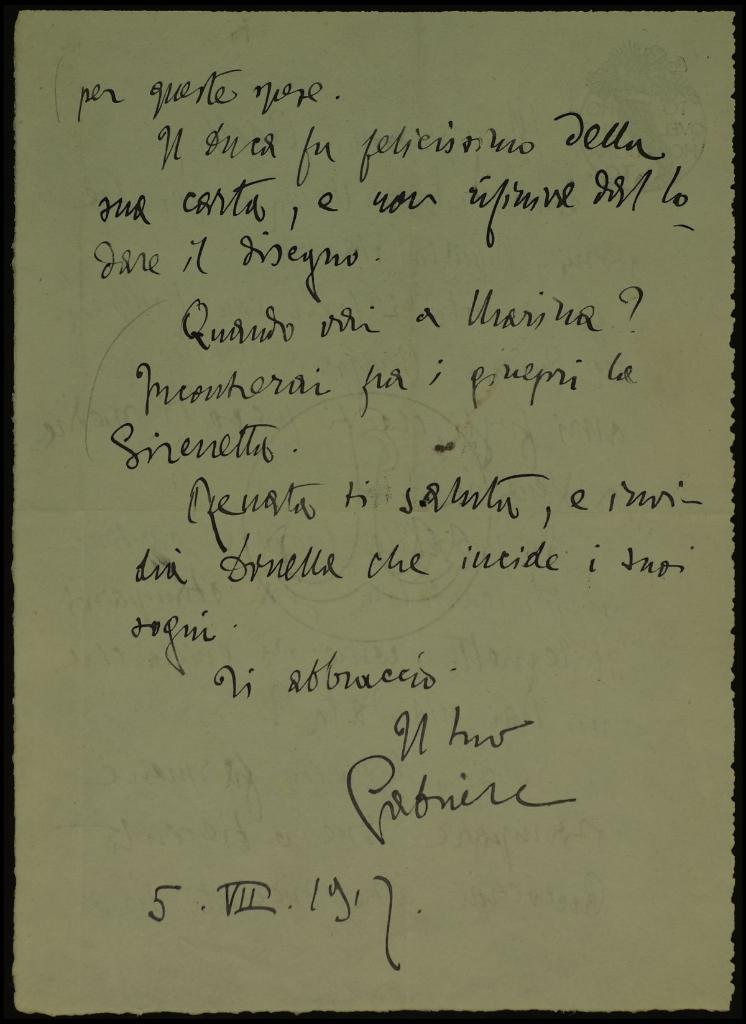 per queste spese.
Il Duca fu felicissimo della
sua carta, e non rifiniva dal lo-
dare il disegno.
Quando vai a Marina?
Incontrerai fra i ginepri la
Sirenetta.
Renata ti saluta, e invi-
dia Donella che incide i suoi
sogni.
Ti abbraccio.
Il tuo
Gabriele
5. VII. 1917.